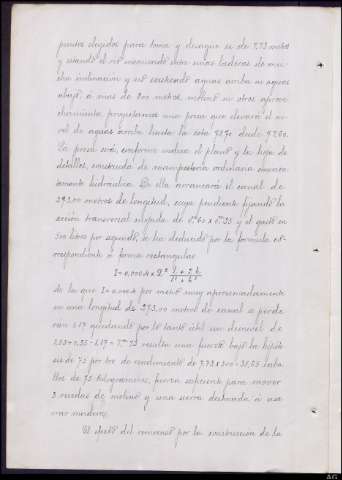 puntos elegidos para toma y desagüe es de 7,73 metros
y estando el río encauzado entre unas laderas de mu-
cha inclinación y no existiendo aguas arriba ni aguas
abajo á mas de 800 metros, molino ni otros aprove-
chamientos, proyectamos una presa que elevará el ni-
vel de aguas arriba hasta la cota 98.70 desde 97.60.
La presa será, conforme indica el plano y la hoja de
detalles, construida de mampostería ordinaria cimenta-
damente hidráulica. De ella arrancará el canal de
293,00 metros de longitud, cuya pendiente fijando la
sección transversal mojada de 0,60 x 0,35 y el gasto en
300 litros por segundo, se ha deducido por la fórmula co-
rrespondiente á forma rectangular
de la que I = 0.004 por metro muy aproximadamente
en una longitud de 293,00 metros de canal se pierde
con 1.17 quedando por lo tanto útil un desnivel de
resulta una fuerza bajo la hipóte-
sis de 75 por 100 de rendimiento de 7,73 x 300 = caba-
llos de 75 kilogrametros, fuerza suficiente para mover
3 ruedas de molino y una sierra destinada á ase-
rrar maderas.
El efecto del remanso por la construcción de la